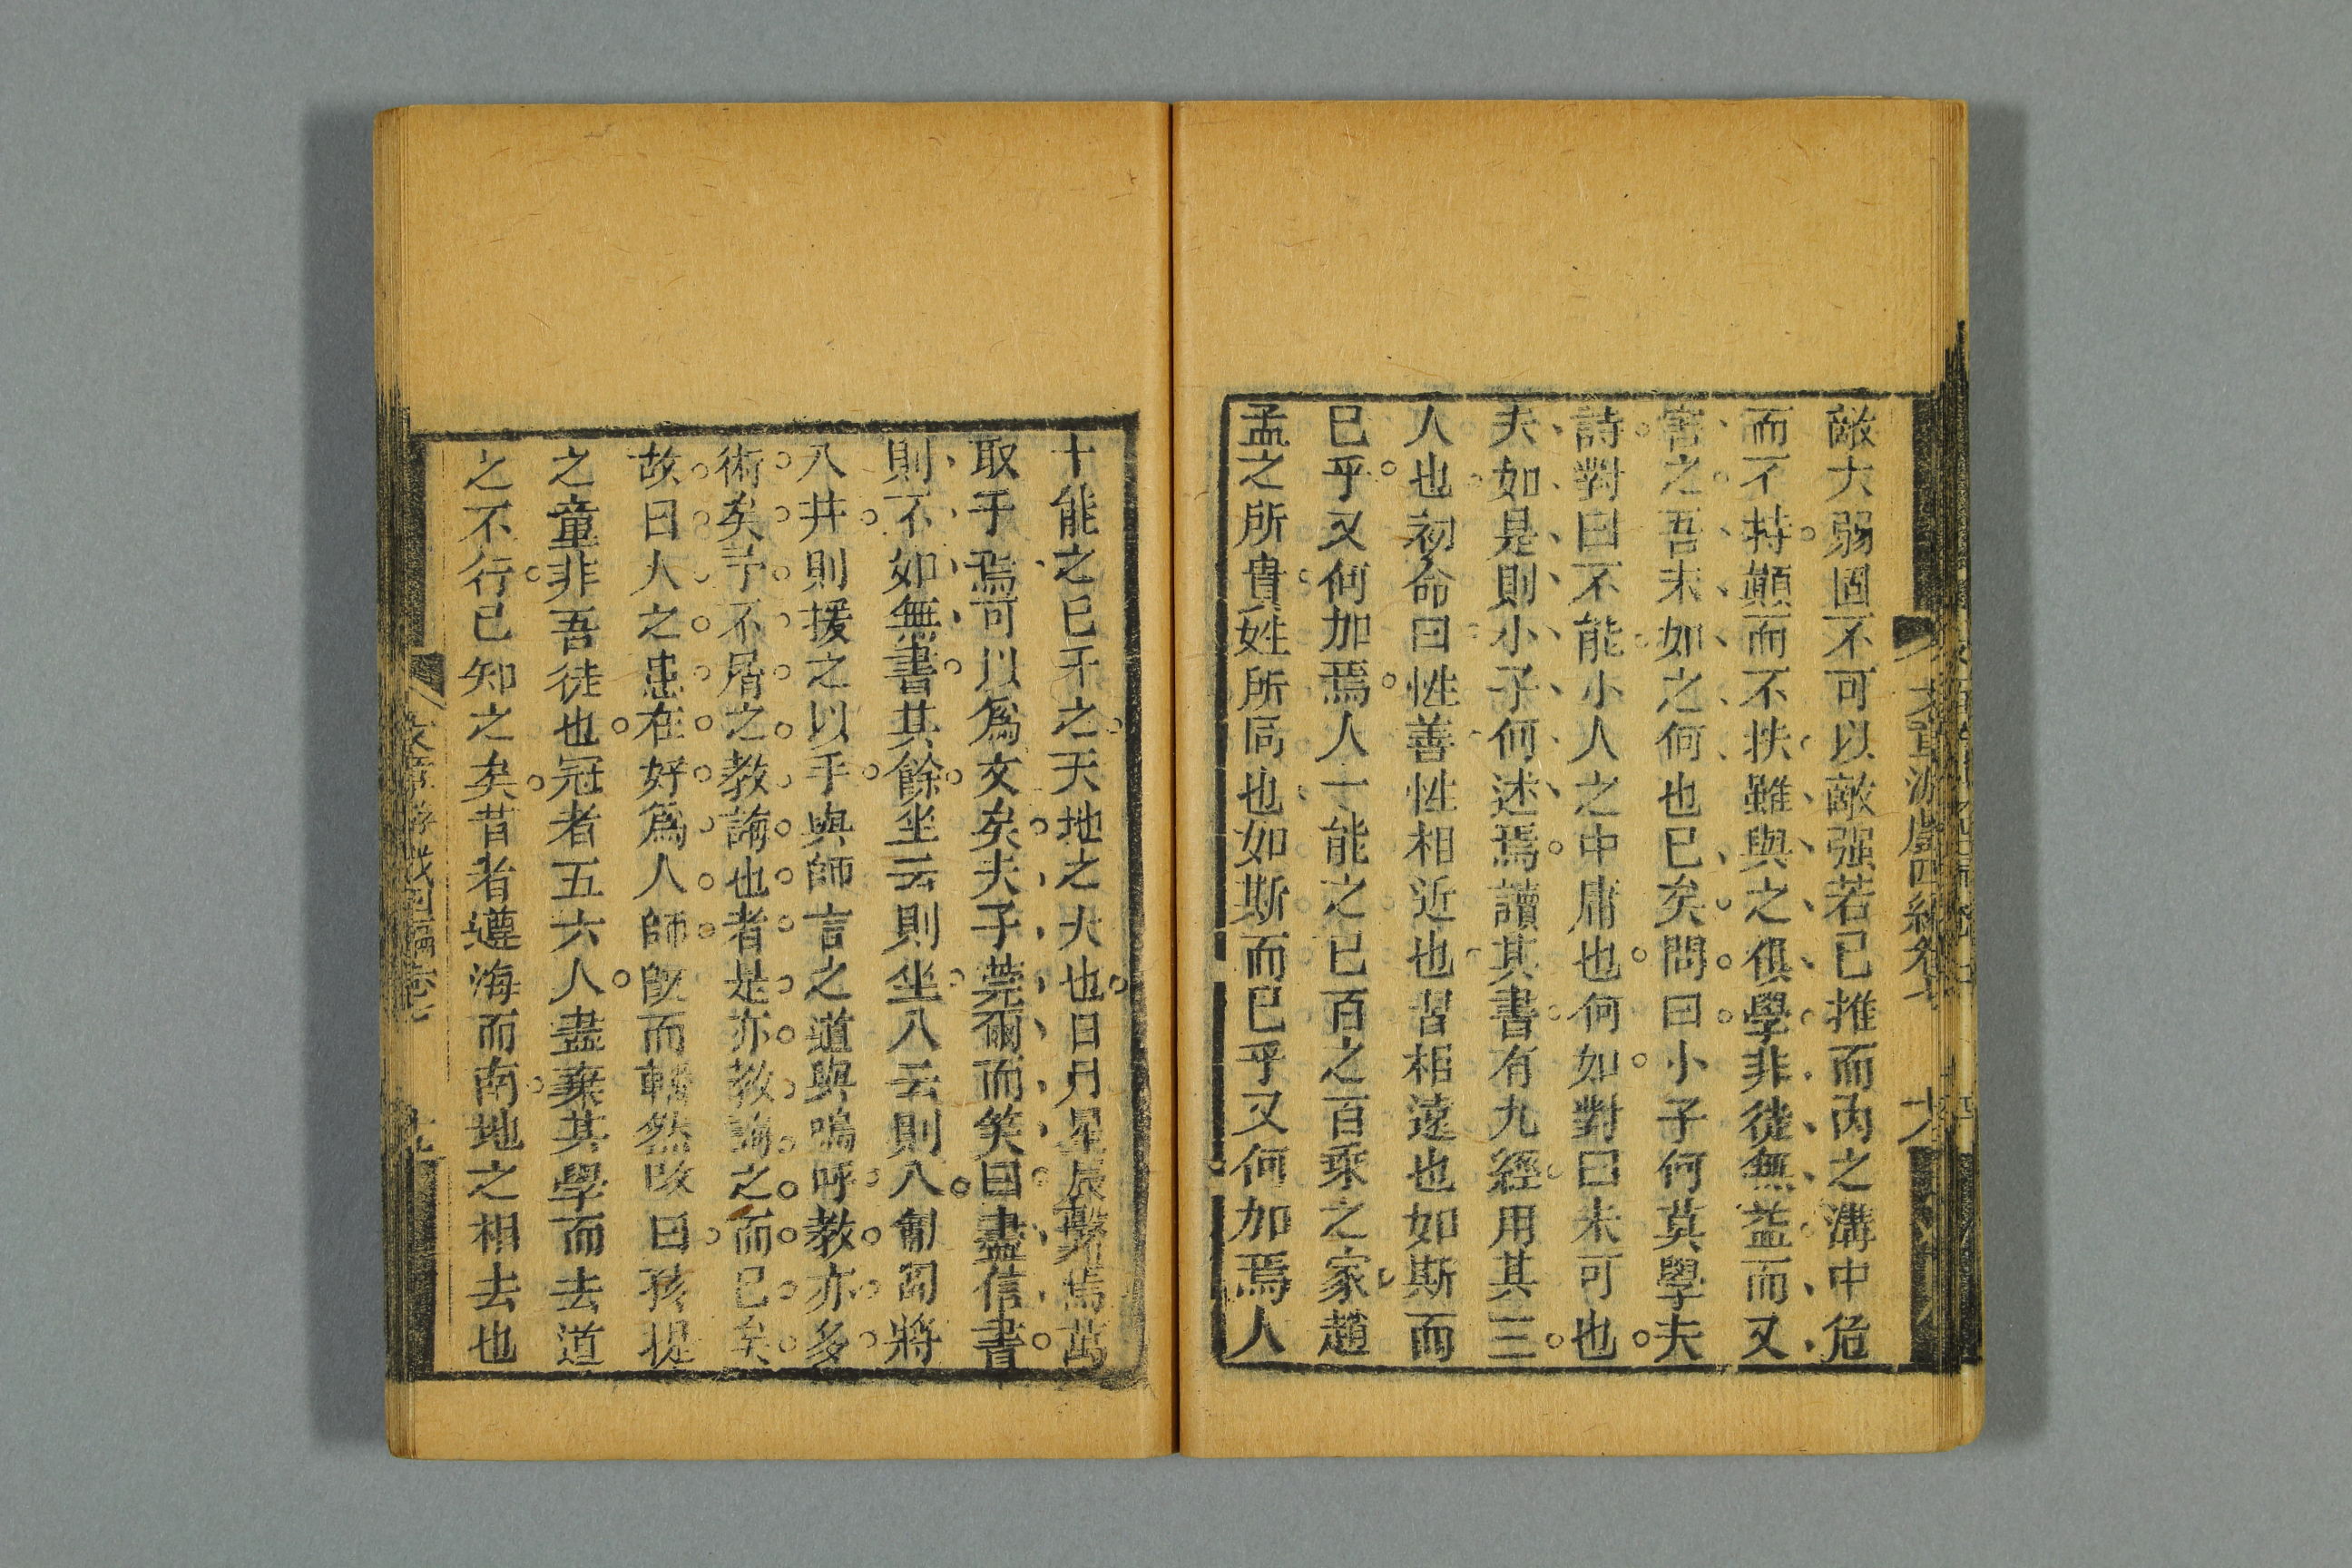 敵大弱固不可以敵强若已推而內之溝中危
而不持顛而不扶雖與之俱學非徒無益而又
害之吾末如之何也已矣問曰小子何莫學夫
詩對曰不能小人之中庸也何如對曰未可也
夫如是則小子何述焉讀其書有九經用其三
人也初命曰性善性相近也習相遠也如斯而
已乎又何加焉人一能之已百之百乘之家趙
孟之所貴姓所同也如斯而已乎又何加焉人
十能之已千之天地之大也日月星辰繫焉萬
取千焉可以爲文矣夫子莞爾而笑曰盡信書
則不如無書其餘坐云則坐八云則八匍匐將
入井則援之以手與師言之道與嗚呼教亦多
術矣予不屑之教誨也者是亦教誨之而已矣
故曰人之患在好爲人師旣而幡然改曰孩提
之童非吾徒也冠者五六人盡棄其學而去道
之不行已知之矣昔者遵海而南地之相去也